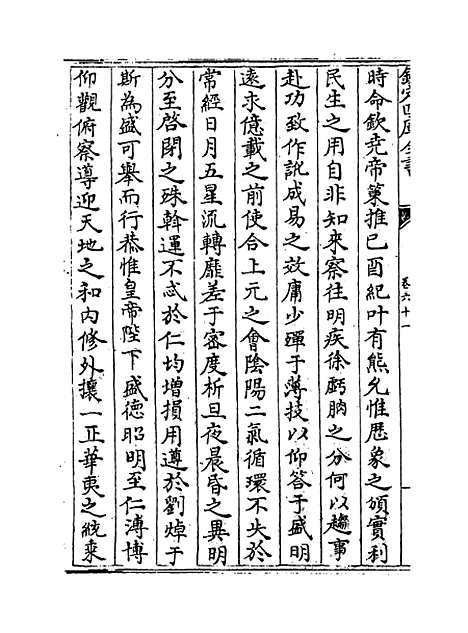 欽定四庫全書
卷六十一
時命欽堯帝策推己酉紀叶有熊允惟歴象之頒實利
民生之用自非知來察往明疾徐虧朒之分何以趨事
赴功致作訛成易之效庸少殫于薄技以仰答于盛明
逺求億載之前使合上元之會隂陽二氣循環不失於
常經日月五星流轉靡差于宻度析旦夜晨昏之異明
分至啓閉之殊斡運不忒於仁均增損用遵於劉焯于
斯為盛可舉而行恭惟皇帝陛下盛德昭明至仁溥博
仰觀俯察導迎天地之和内修外攘一正華夷之統乗